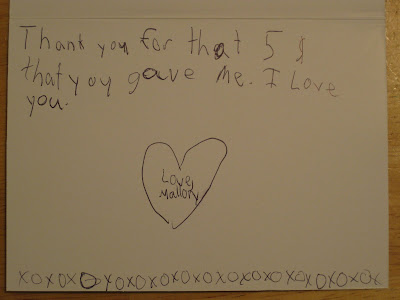 Thank you for that 5 $
that you gave me. I Love
you.
Love,
Mallory
XOXOXOXOXOXOXOXOXOXOXOXOXOX